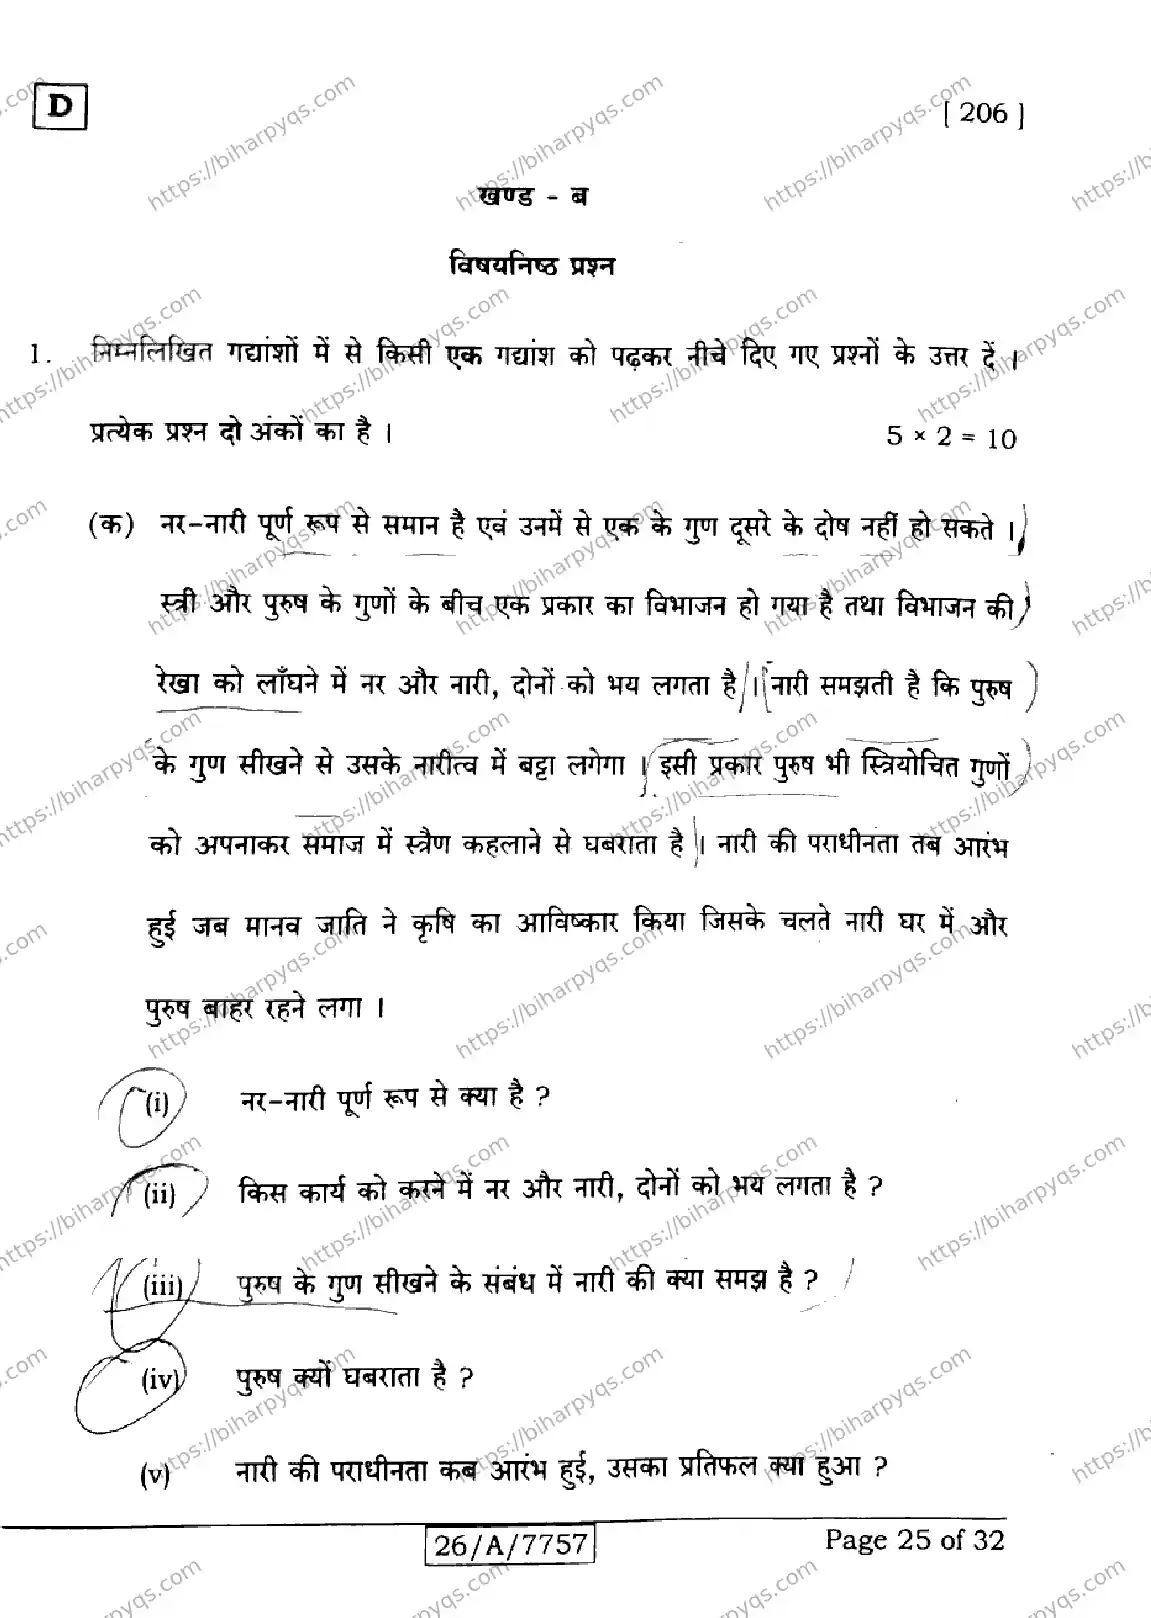 D
[ 206 ]
खण्ड - ब
विषयनिष्ठ प्रश्न
1. निम्नलिखित गद्यांशों में से किसी एक गद्यांश को पढ़कर नीचे दिए गए प्रश्नों के उत्तर दें ।
प्रत्येक प्रश्न दो अंकों का है । 5 × 2 = 10
(क) नर-नारी पूर्ण रूप से समान है एवं उनमें से एक के गुण दूसरे के दोष नहीं हो सकते ।
स्त्री और पुरुष के गुणों के बीच एक प्रकार का विभाजन हो गया है तथा विभाजन की
रेखा को लाँघने में नर और नारी, दोनों को भय लगता है । नारी समझती है कि पुरुष
के गुण सीखने से उसके नारीत्व में बट्टा लगेगा । इसी प्रकार पुरुष भी स्त्रियोचित गुणों
को अपनाकर समाज में स्त्रैण कहलाने से घबराता है । नारी की पराधीनता तब आरंभ
हुई जब मानव जाति ने कृषि का आविष्कार किया जिसके चलते नारी घर में और
पुरुष बाहर रहने लगा ।
(i) नर-नारी पूर्ण रूप से क्या है ?
(ii) किस कार्य को करने में नर और नारी, दोनों को भय लगता है ?
(iii) पुरुष के गुण सीखने के संबंध में नारी की क्या समझ है ?
(iv) पुरुष क्यों घबराता है ?
(v) नारी की पराधीनता कब आरंभ हुई, उसका प्रतिफल क्या हुआ ?
26/A/7757
Page 25 of 32
https://biharpyqs.com